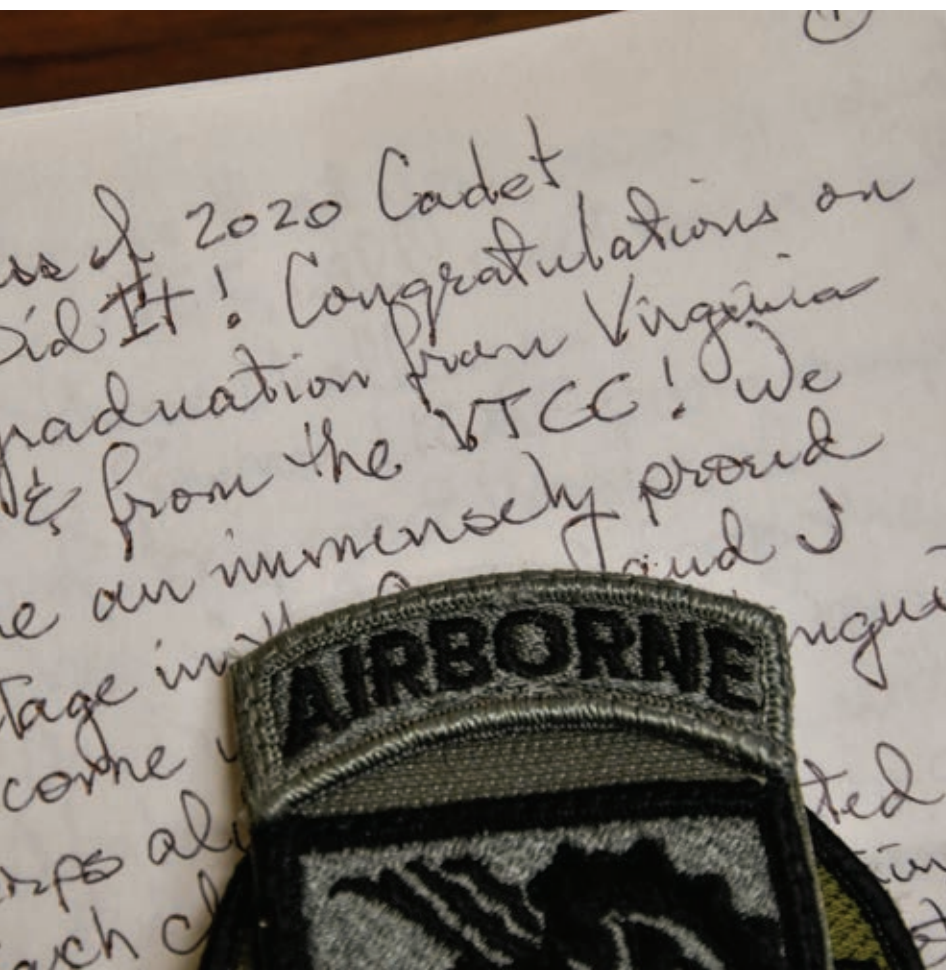 1
ss of 2020 Cadet
Did It! Congratulations on
graduation from Virginia
& from the VTCC! We
an immensely proud
tage in and
come
rps al
ach
ted
AIRBORNE